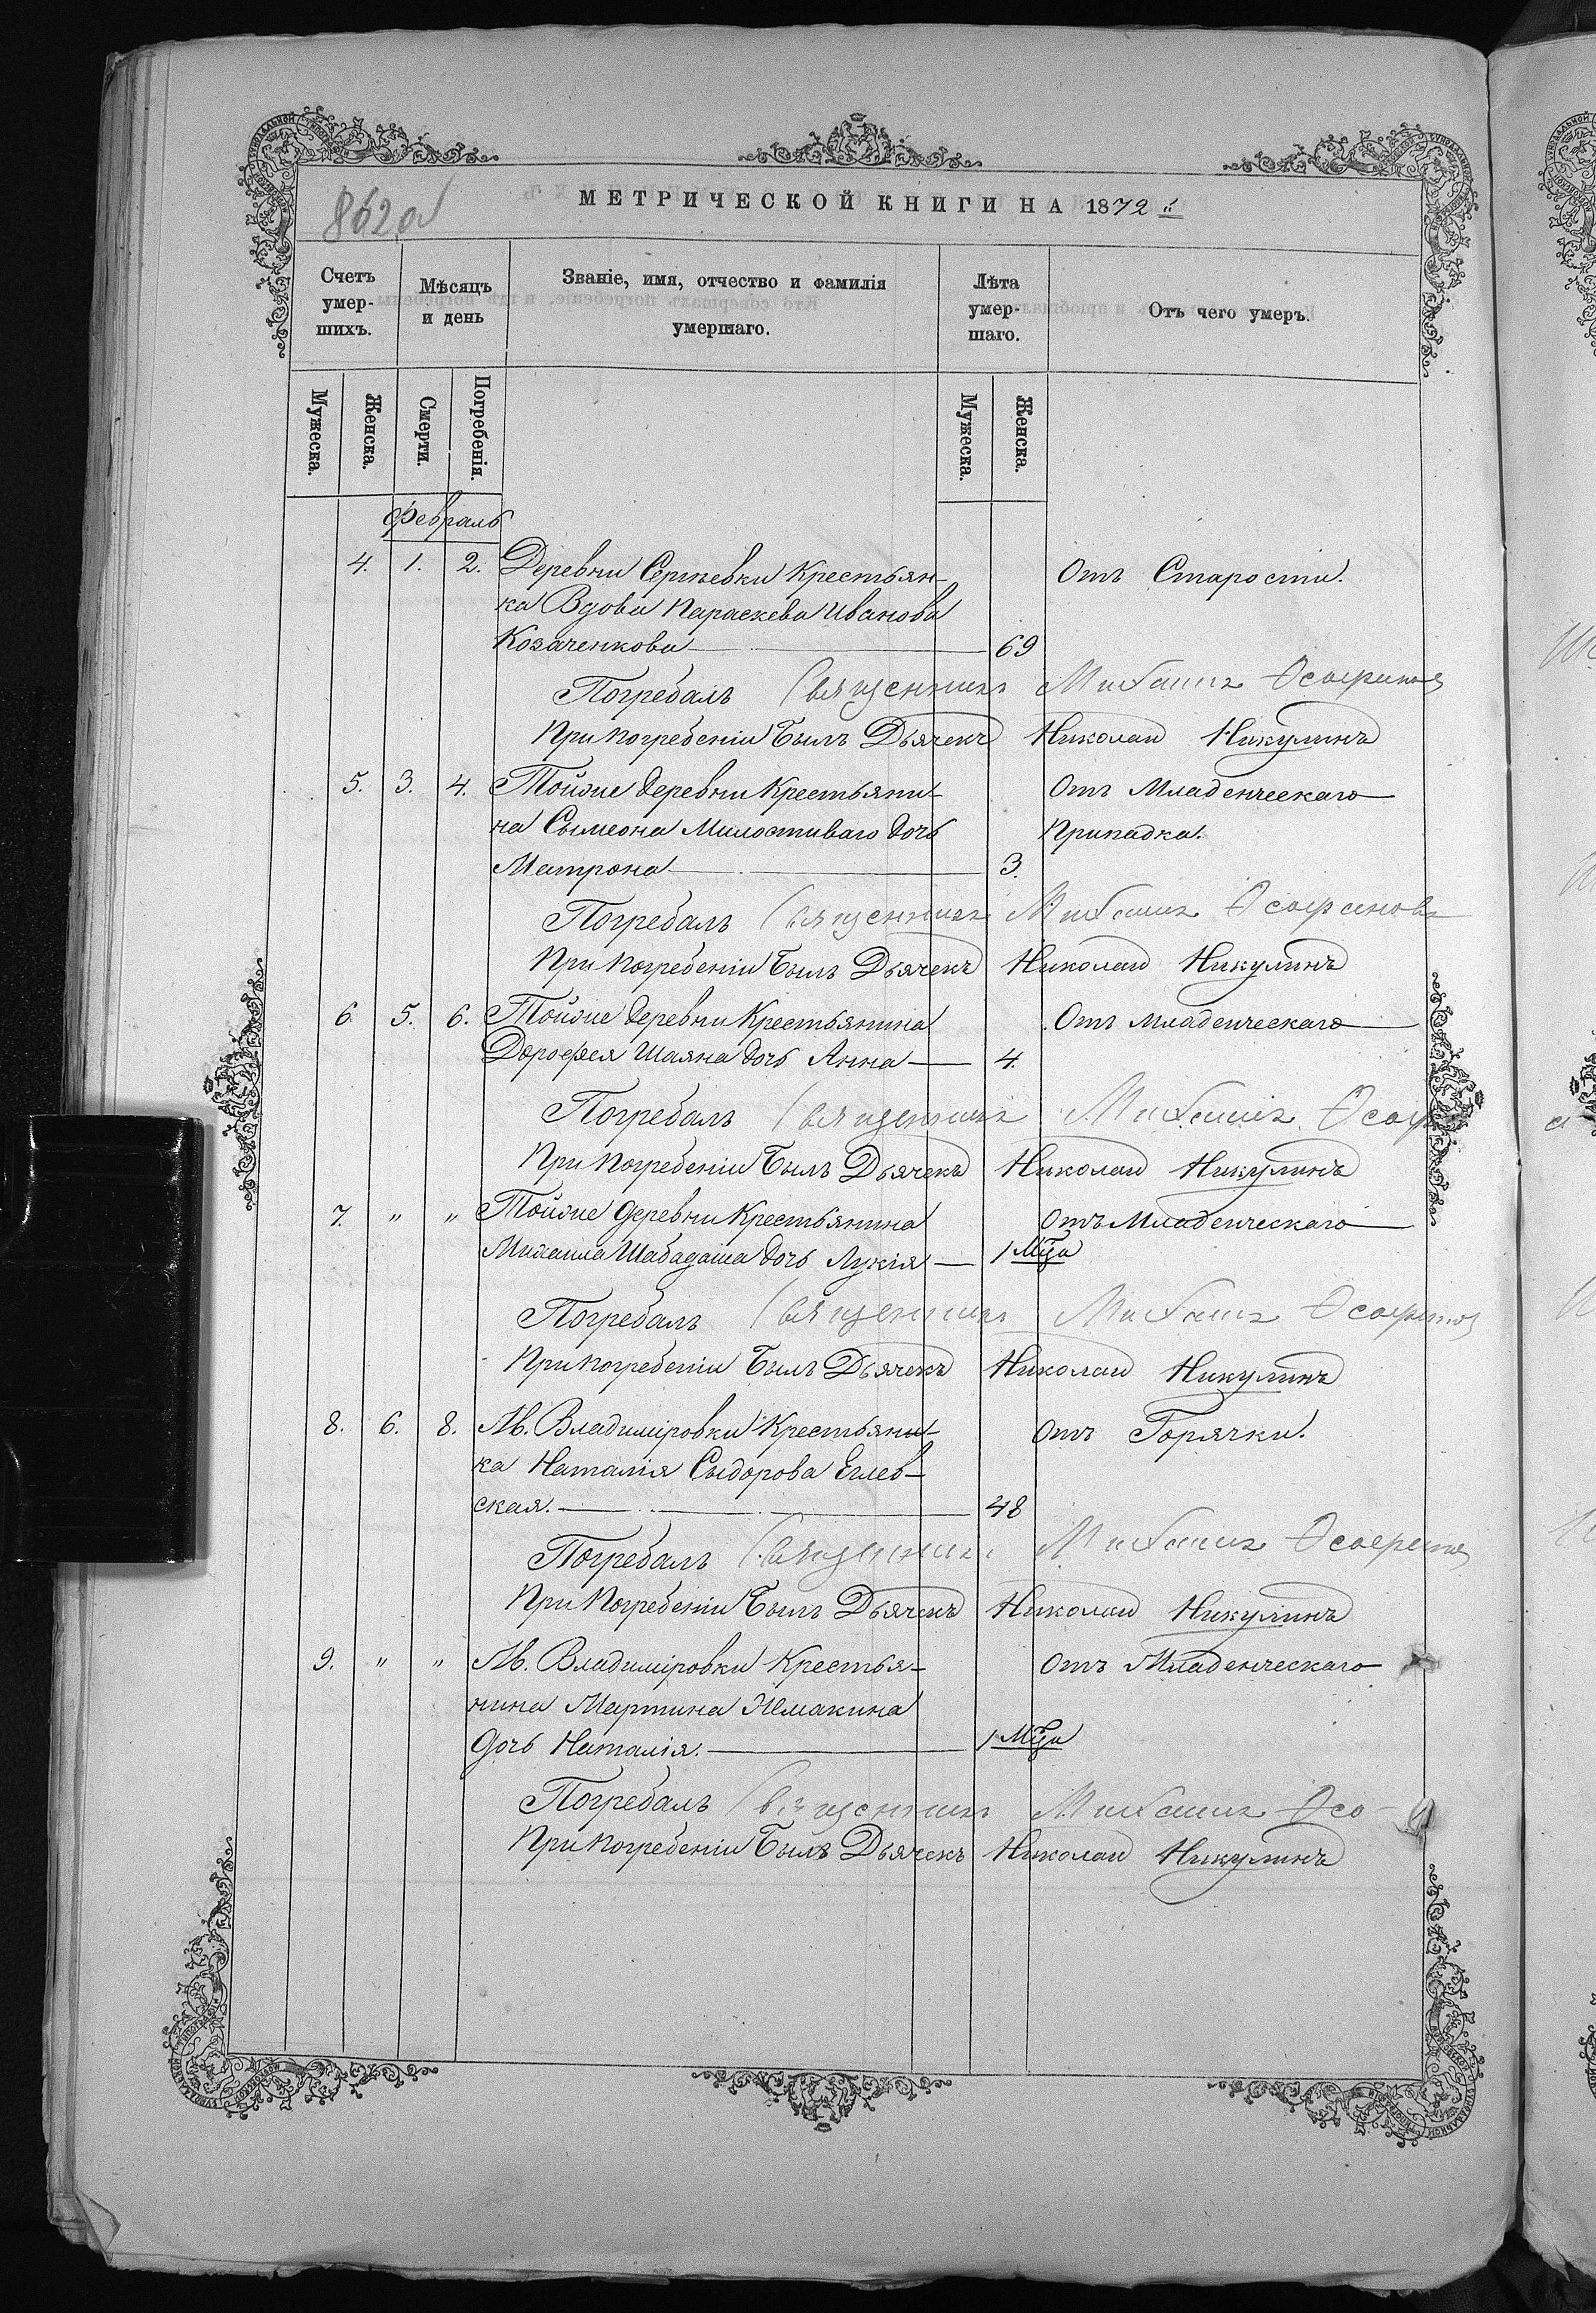 862 об
МЕТРИЧЕСКОЙ КНИГИ НА 1872
Счетъ умер-шихъ.
Мѣсяцъ и день
Званіе, имя, отчество и фамилія умершаго.
Лѣта умер-шаго.
Отъ чего умеръ.
Мужеска. Женска. Смерти. Погребенія. Мужеска. Женска.
Февраль
4. 1. 2. Деревни Сергѣевки Крестьян- Отъ Старости.
ка Вдова Параскева Иванова
Козаченкова 69
Погребалъ Священникъ Михаилъ
При погребеніи былъ Дьячекъ Николай Никулинъ
5. 3. 4. Тойже деревни Крестьяни- Отъ Младенческаго
на Сѵмеона Милостиваго дочь Припадка.
Матрона 3.
Погребалъ Священникъ Михаилъ
При погребеніи былъ Дьячекъ Николай Никулинъ
6. 5. 6. Тойже деревни Крестьянина Отъ младенческаго
Дорофея Шаяна дочь Анна 4.
Погребалъ Священникъ Михаилъ
При погребеніи былъ Дьячекъ Николай Никулинъ
7. " " Тойже деревни Крестьянина Отъ Младенческаго
Михаила Шабадаша дочь Лукія 1 Мца
Погребалъ Священникъ Михаилъ
При погребеніи былъ Дьячекъ Николай Никулинъ
8. 6. 8. М. Владиміровки Крестьян- Отъ Горячки.
ка Наталія Сыдорова Еглев-
ская. 48
Погребалъ Священникъ Михаилъ
При погребеніи былъ Дьячекъ Николай Никулинъ
9. " " М. Владиміровки Крестья- Отъ Младенческаго
нина Мартина
дочь Наталія. 1 Мца
Погребалъ Священникъ Михаилъ
При погребеніи былъ Дьячекъ Николай Никулинъ